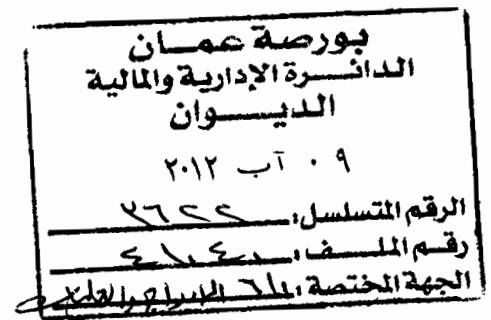 بورصة عمان
الدائرة الإدارية والمالية
الديوان
٠٩ آب ٢٠١٢
الرقم المتسلسل: ٣٦٢٢
رقم الملف:
الجهة المختصة: الإدراج